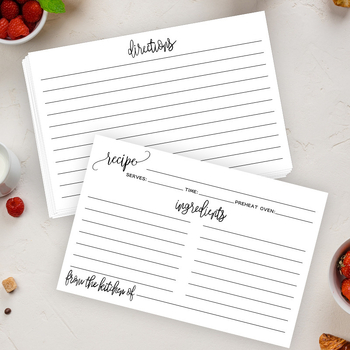 directions
recipe
SERVES: TIME: PREHEAT OVEN:
ingredients
from the kitchen of